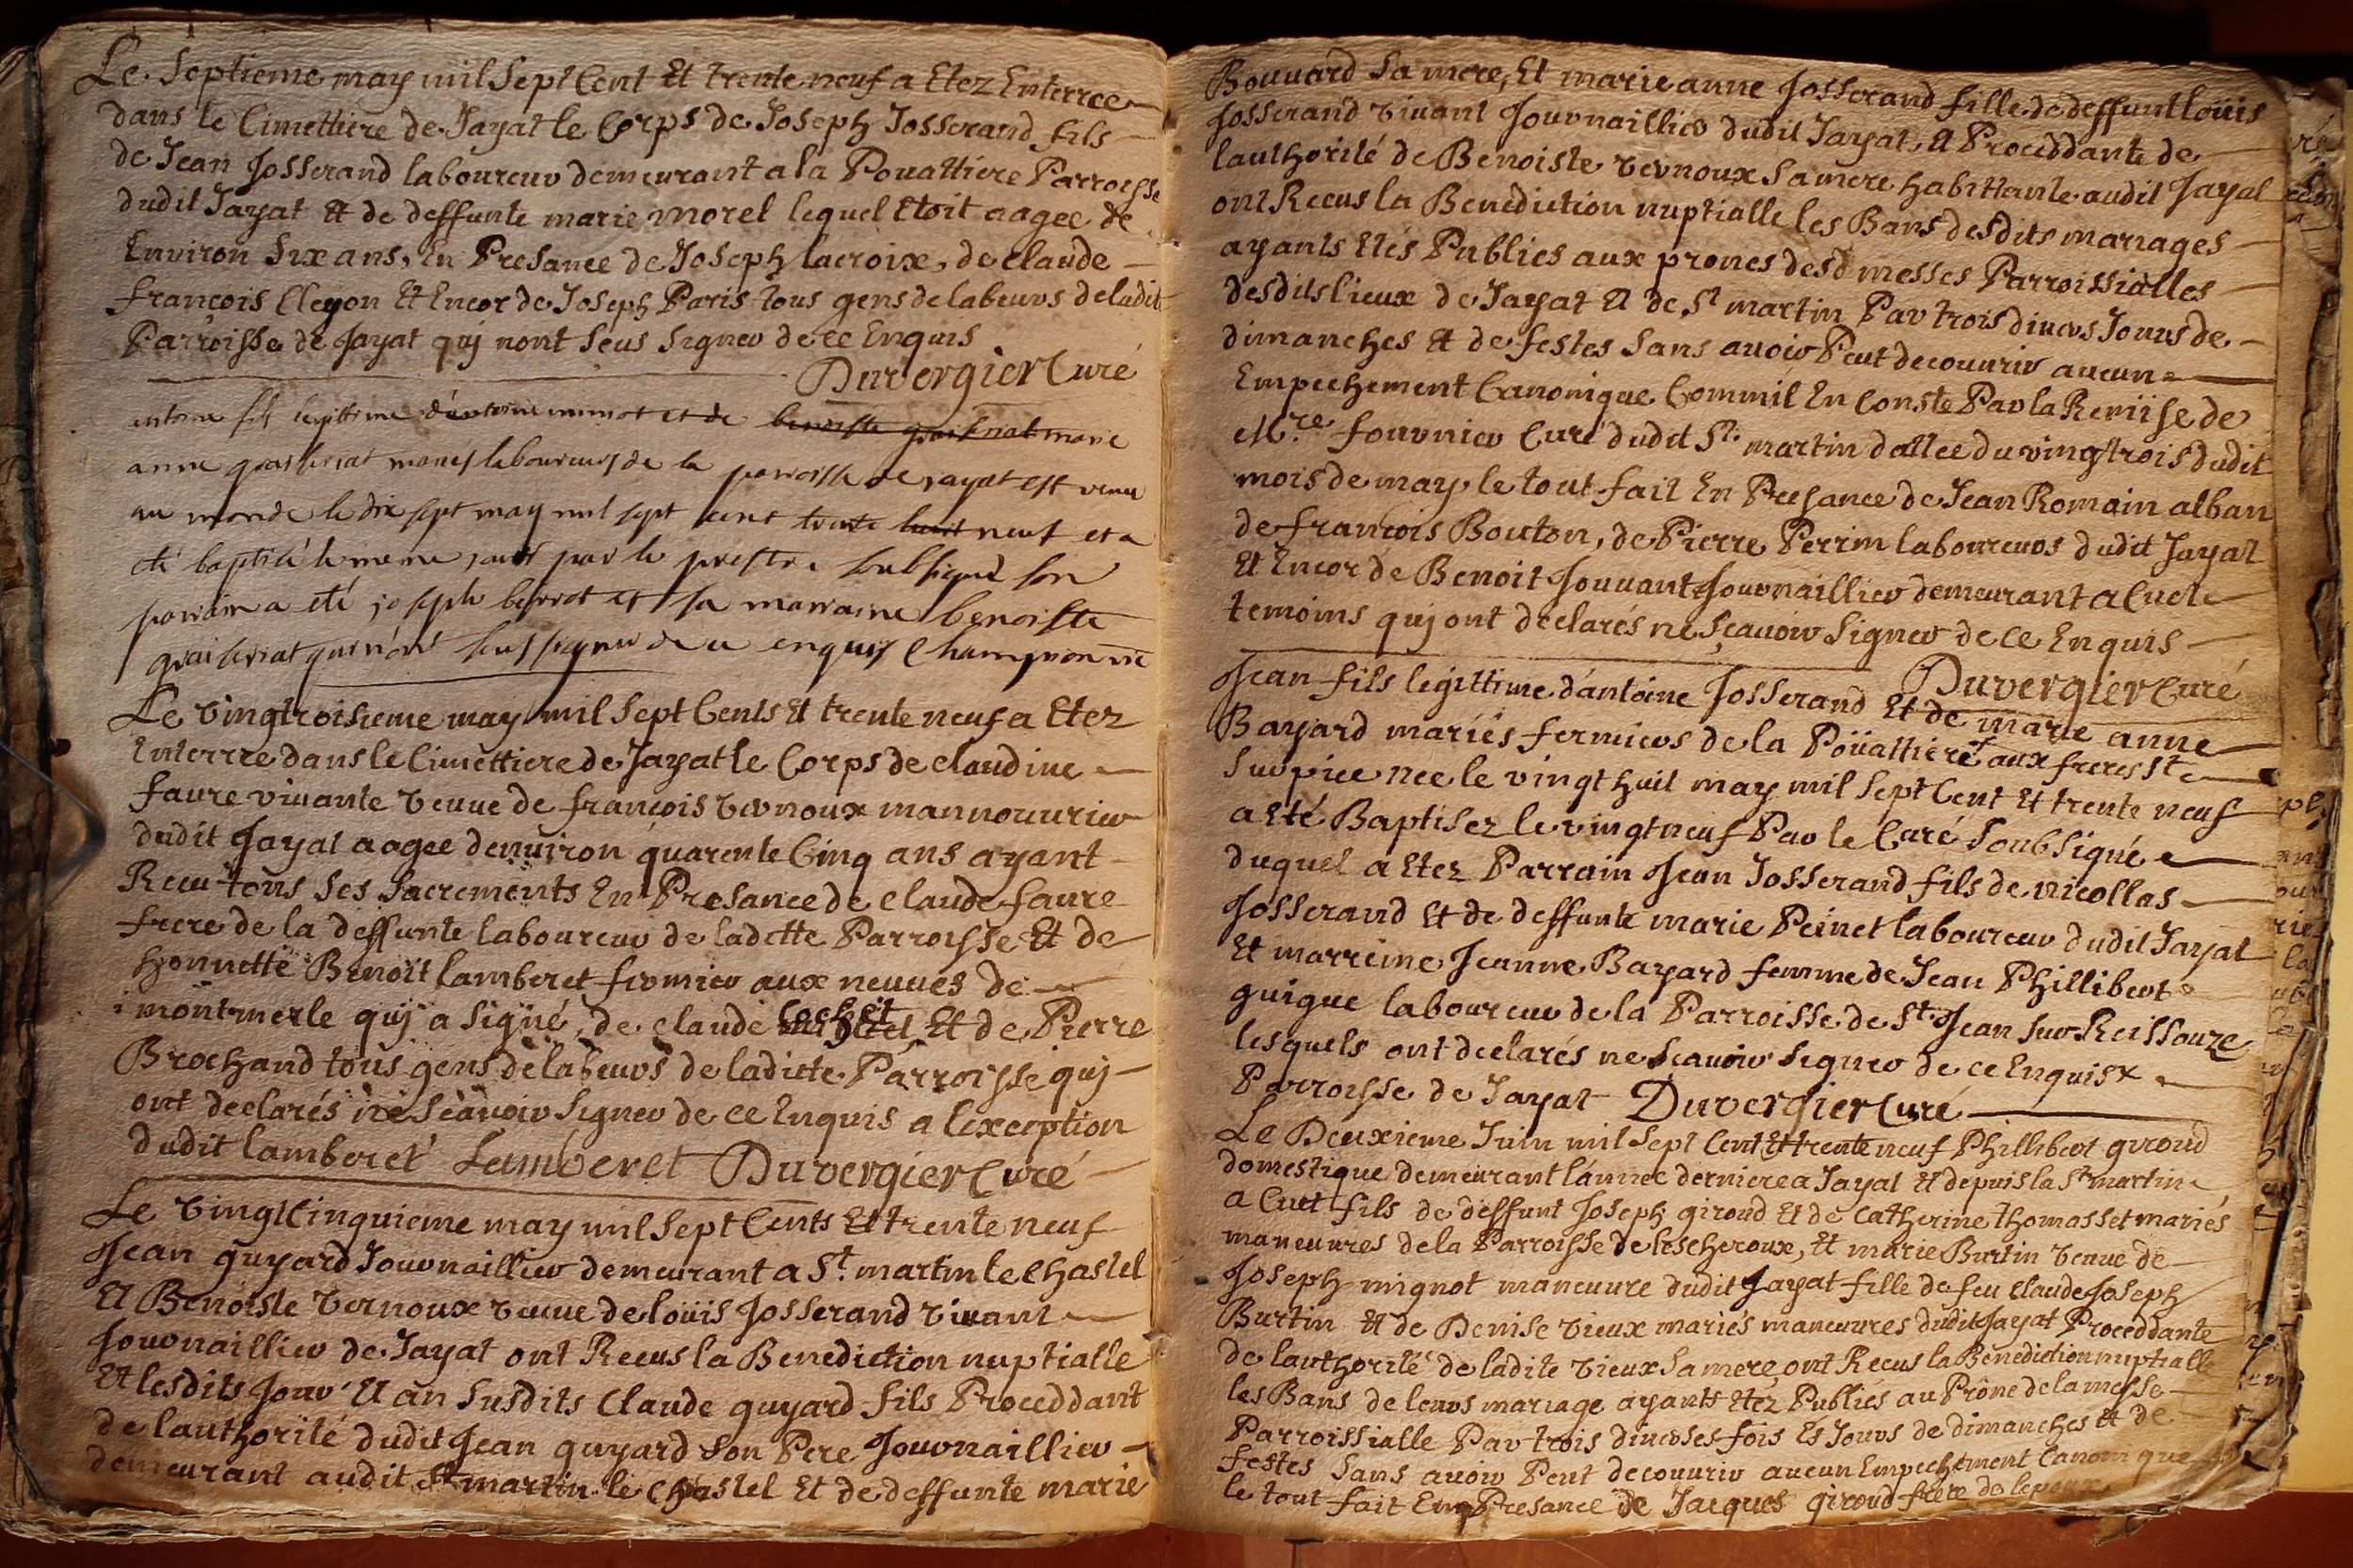 Le Septieme may mil Sept Cent Et trente neuf a Etez Enterree
dans le Cimettiere de Jayat le Corps de Joseph Josserand fils
de Jean Josserand laboureur demeurant a la Pouattiere Parroisse
dudit Jayat Et de deffunte marie morel lequel Etoit aagee de
Environ Six ans, En Presance de Joseph lacroix, de claude
francois Cleyon Et Encor de Joseph Paris tous gens de labeurs de ladite
Parroisse de Jayat quj nont Seus Signer de ce Enquis
Duvergier Curé
antoine fils legittime d'antoine minnot et de benoiste graiseriat marie
anne graiseriat maries laboureurs de la parroisse de jayat est venu
au monde le dix sept may mil sept cent trente huit neuf et a
eté baptisé le meme jour par le prestre soubsigné son
parrain a eté joseph berrot et sa marraine benoiste
graiseriat qui n'ont seus signer de ce enquis Champion vic
Le vingtroisieme may mil Sept Cents Et trente neuf a Etez
Enterrre dans le Cimettiere de Jayat le Corps de claudine
faure vivante veuve de francois vernoux mannouvrier
dudit Jayat aagee denviron quarente Cinq ans ayant
Receu tous Ses Sacrements En Presance de claude faure
frere de la deffunte laboureur de ladette Parroisse Et de
honnette Benoit lamberet fermier aux neuves de
montmerle quj a Signé, de claude cochet Et de Pierre
Brochand tous gens de labeurs de ladicte Parroisse quj
ont declarés ne Scavoir Signer de ce Enquis a lexception
dudit lamberet Lamberet Duvergier Curé
Le vingtCinquieme may mil Sept Cents Et trente neuf
Jean guyard Journaillier demeurant a St. martin le Chastel
Et Benoiste vernoux veuve de loüis Josserand vivant
Journaillier de Jayat ont Receus la Benediction nuptialle
Et lesdits Jour Et an Susdits Claude guyard fils Proceddant
de lauthorité dudit Jean guyard Son Pere Journaillier
demeurant audit St martin le Chastel Et de deffunte marie
Bouvard Sa mere, Et marie anne Josserand fille de deffunt loüis
Josserand vivant Journaillier dudit Jayat, Et Proceddante de
lauthorité de Benoiste vernoux Sa mere habittante audit Jayat
ont Receus la Benediction nuptialle les Bans desdits mariages
ayants Etés Publies aux prones desd messes Parroissialles
desdits lieux de Jayat Et de St martin Par trois divers Jours de
dimanches Et de festes Sans avoir Peut decouvrir aucun
Empechement Canonique Commil En Conste Par la Remise de
Mre fournier Curé dudit St. martin dattee du vingtrois dudit
mois de may, le tout fait En Presance de Jean Romain alban
de francois Bouton, de Pierre Perrin laboureurs dudit Jayat
Et Encor de Benoit Jouvant Journaillier demeurant a Cuet
temoins quj ont declarés ne Sçavoir Signer de ce Enquis
Duvergier Curé
Jean fils legittime d'antoine Josserand Et de marie anne
Bayard mariés fermiers de la Poüattiere aux freres Ste
Surpice nee le vingt huit may mil Sept Cent Et trente neuf
a Eté Baptisez le vingt neuf Par le Curé Soubsigné
duquel a Etez Parrain Jean Josserand fils de nicollas
Josserand Et de deffunte marie Peinet laboureur dudit Jayat
Et marreine Jeanne Bayard femme de Jean Phillibert
guigue laboureur de la Parroisse de St. Jean Sur Reissouze
lesquels ont declarés ne Scavoir Signer de ce Enquis x
Parroisse de Jayat Duvergier Curé
Le Deuxieme Juin mil Sept Cent Et trente neuf Phillibert giroud
domestique demeurant l'annee derniere a Jayat Et depuis la St martin
a Cuet fils de deffunt Joseph giroud Et de Catherine thomasset mariés
maneuvres de la Parroisse de lescheroux, Et marie Burtin veuve de
Joseph mignot maneuvre dudit Jayat fille de feu Claude Joseph
Burtin Et de Denise vieux mariés maneuvres dudit Jayat Proceddante
de lauthorité de ladite vieux Sa mere, ont Receus la Benediction nuptialle
les Bans de leurs mariage ayants Etez Publiés au Prône de la messe
Parroissialle Par trois diverses fois Es Jours de dimanches Et de
festes Sans avoir Peut decouvrir aucun Empechement Canonique
le tout fait En Presance de Jacques giroud frere de lepoux